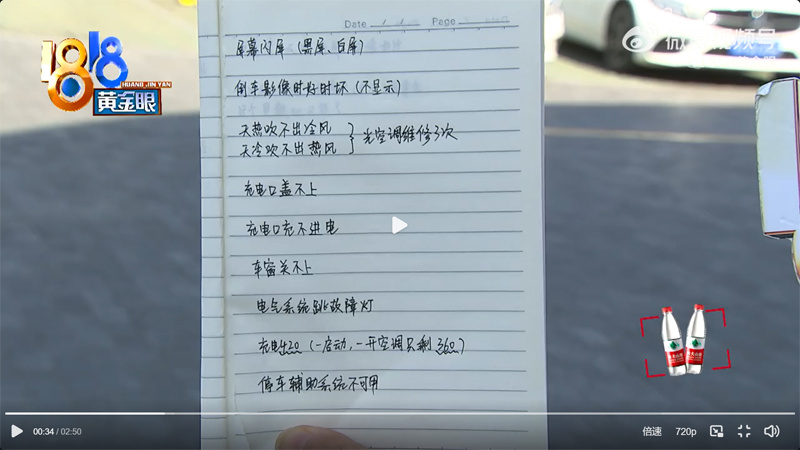 Date Page
1818
HUANG JIN YAN
黄金眼
视频号
屏幕闪屏（黑屏 白屏）
倒车影像时好时坏（不显示）
天热吹不出冷风
天冷吹不出热风
} 光空调维修3次
充电口盖不上
充电口充不进电
车窗关不上
电气系统跳故障灯
充电420（一启动，一开空调只剩360）
停车辅助系统不可用
00:34 / 02:50
倍速
720p